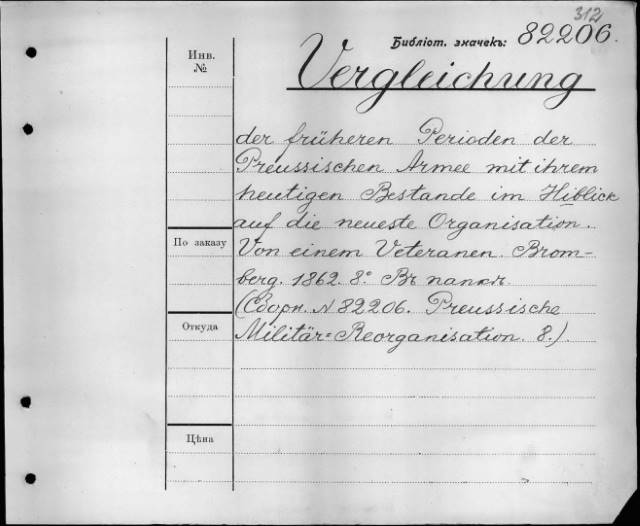 312
Библіот. значекъ: 82206.
Инв.
№
Vergleichung
der früheren Perioden der
Preussischen Armee mit ihrem
heutigen Bestande im Hiblick
auf die neueste Organisation.
По заказу
Von einem Veteranen. Brom-
berg. 1862. 8.° Въ папкѣ.
(Сборн. N 82206. Preussische
Откуда
Militär=Reorganisation. 8.).
Цѣна